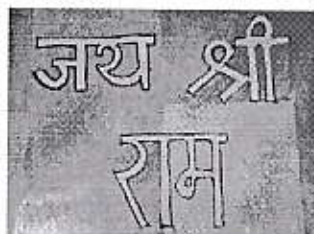 जय श्री
राम